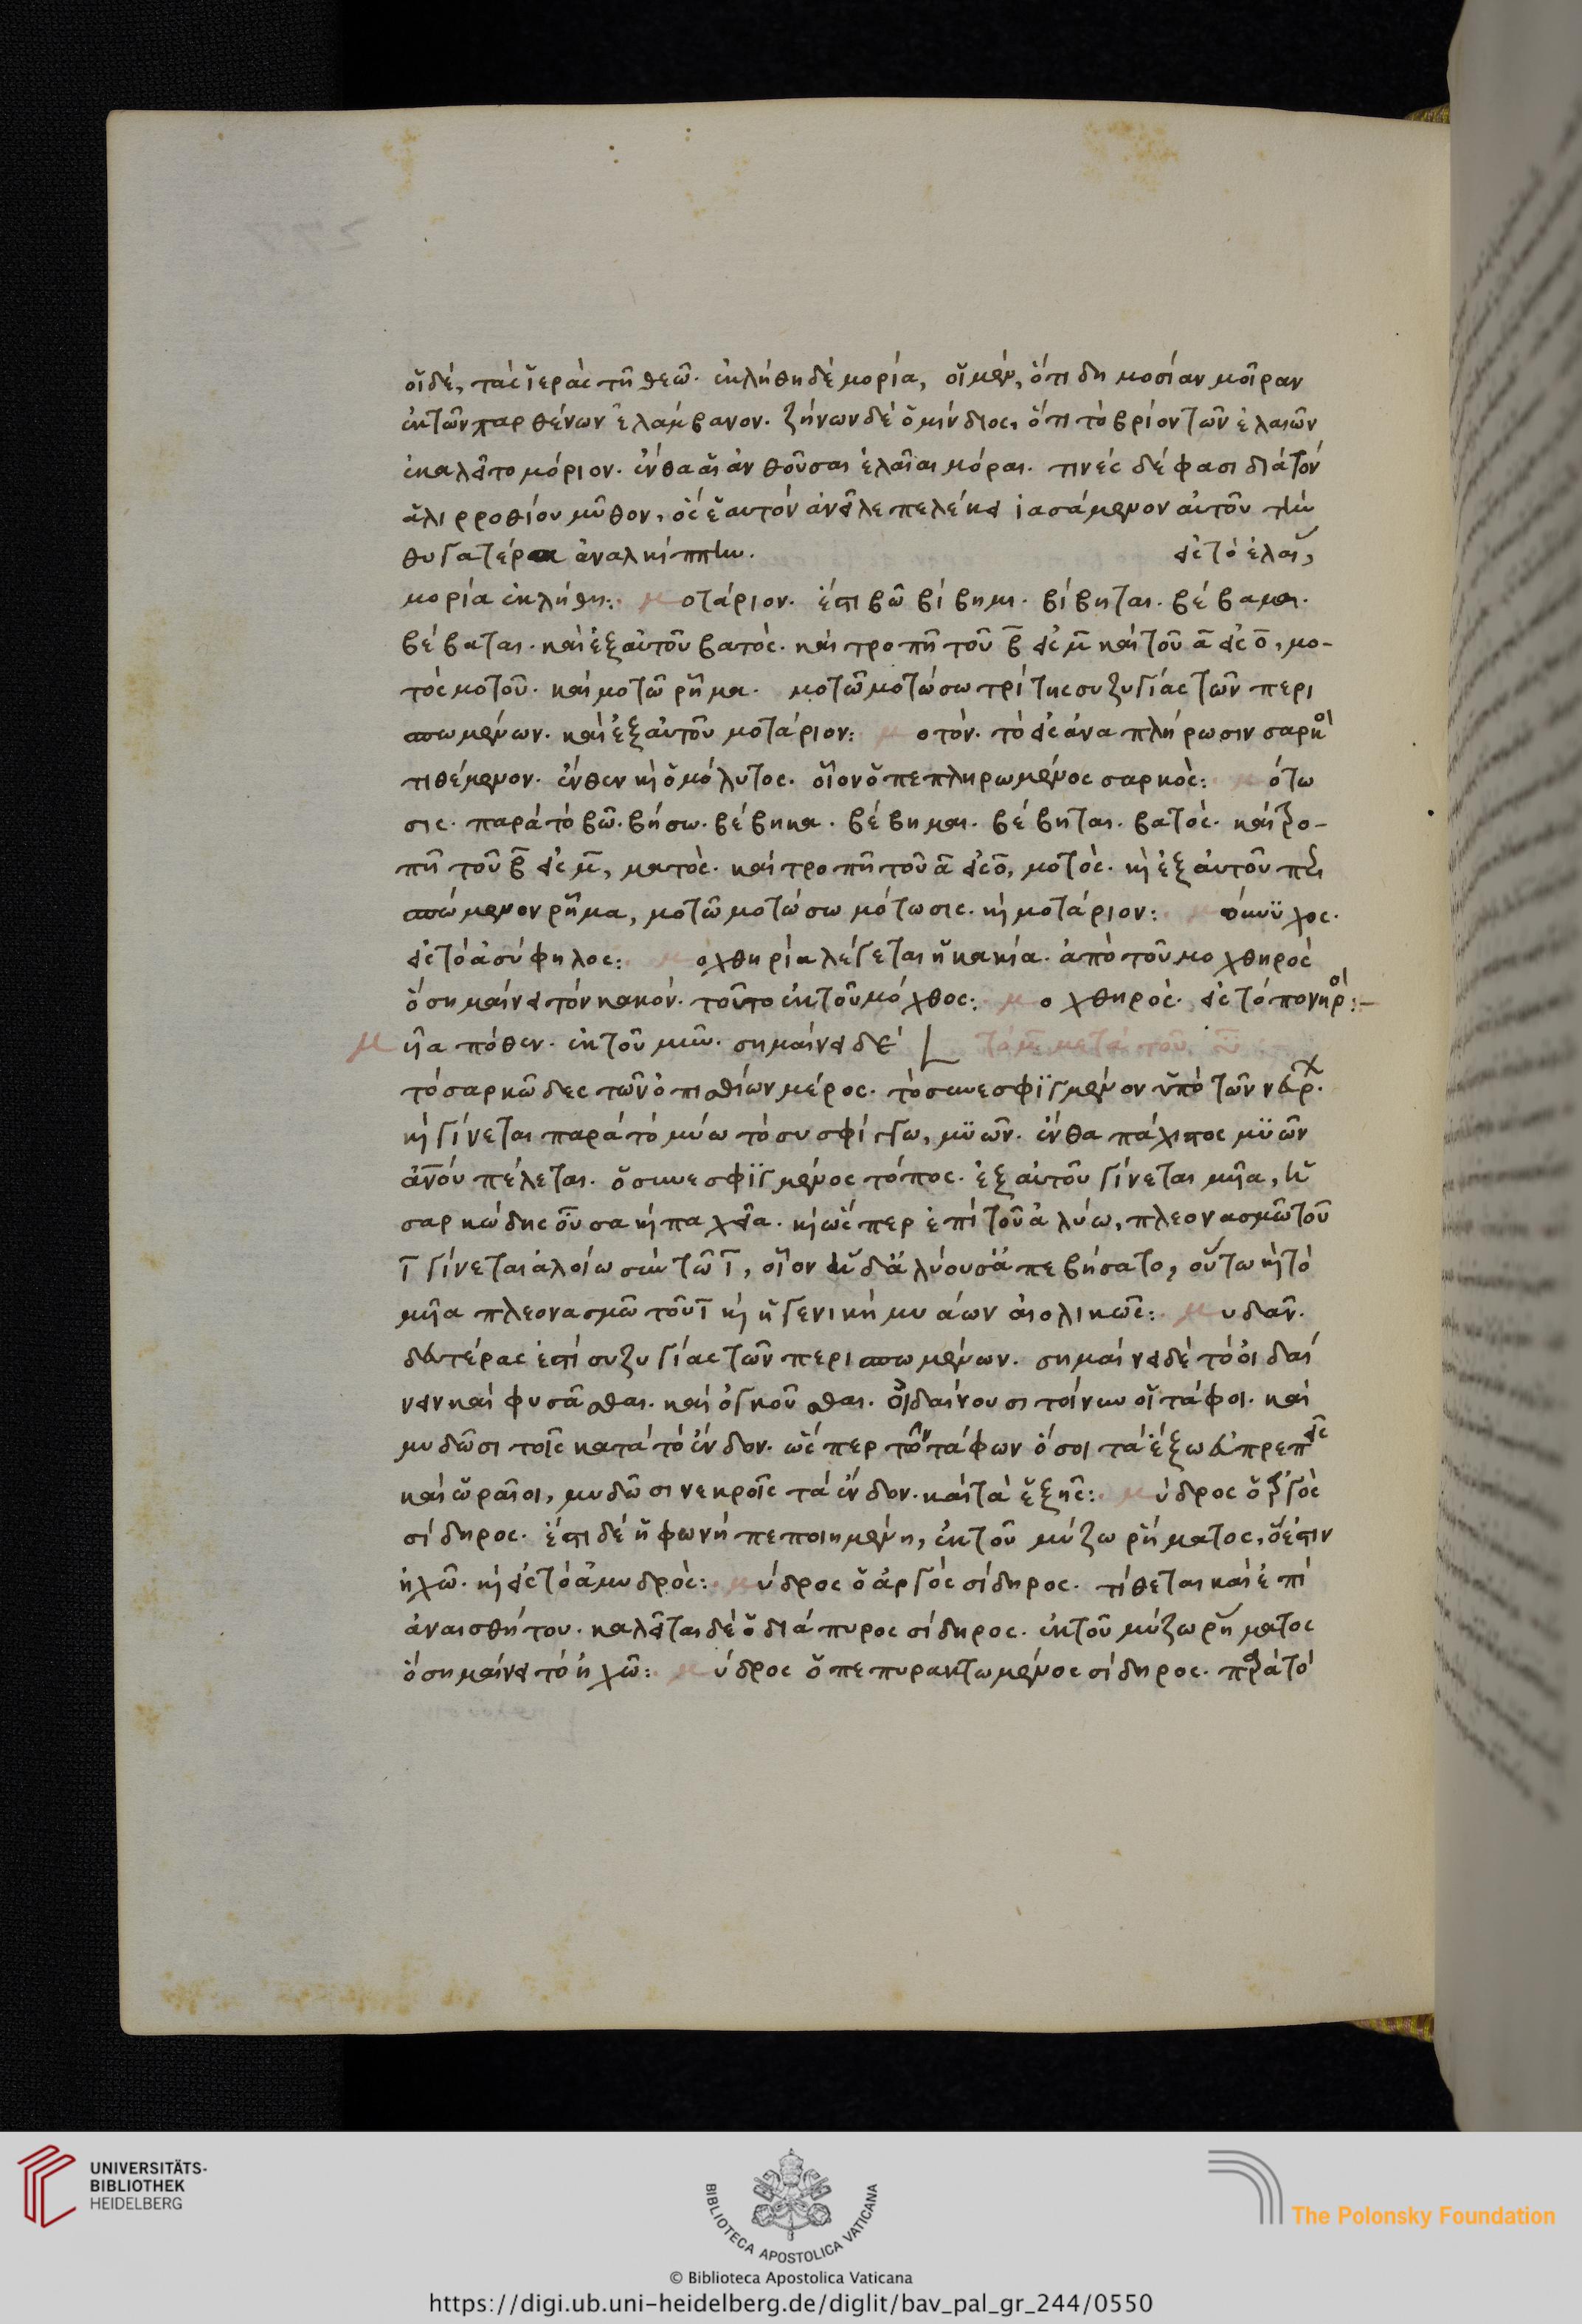 οἵ δὲ, τὰς ἱερὰς τῆ θεῶ. ἐκλήθη δὲ μορία, οἵ μὲν, ὅτι δημοσίαν μοῖραν
ἐκ τῶν παρθένων ἐλάμβανον. ζήνων δὲ ὁ μίνδιος, ὅτι τὸ βρίον τῶν ἐλαιῶν
ἐκαλεῖτο μόριον. ἔνθα αἱ ἀνθοῦσαι ἐλαῖαι μόραι. τινὲς δέ φασι διὰ τὸν
ἁλιρροθίου μῦθον, ὃς ἑαυτὸν ἀνεῖλε πελέκει ἰασάμενον αὐτοῦ τὴν
θυγατέρα ἀναλκίππην. εἰς τὸ ἐλαί,
μορία ἐκλήθη: μοτάριον. ἔστι βῶ βίβημι. βίβηται. βέβαμαι.
βέβαται. καὶ ἐξ αὐτοῦ βατός. καὶ τροπῆ τοῦ β̄ εἰς μ̄ καὶ τοῦ ᾱ εἰς ο̄, μο-
τὸς μοτοῦ. καὶ μοτῶ ῥῆμα. μοτῶ μοτώσω τρίτης συζυγίας τῶν περι
σπωμένων. καὶ ἐξ αὐτοῦ μοτάριον: μοτόν. τὸ εἰς ἀναπλήρωσιν σαρκὸ
τιθέμενον. ἔνθεν κὶ ὁ μόλυτος. οἷον ὁ πεπληρωμένος σαρκός: μότω
σις. παρὰ τὸ βῶ. βήσω. βέβηκα. βέβημαι. βέβηται. βατός. καὶ τρο-
πῆ τοῦ β̄ εἰς μ̄, ματός. καὶ τροπῆ τοῦ ᾱ εἰς ο̄, μοτός. κὶ ἐξ αὐτοῦ περι
σπώμενον ῥῆμα, μοτῶ μοτώσω μότωσις. κὶ μοτάριον: μόκυϋχος.
εἰς τὸ ἀσύφηλος: μοχθηρία λέγεται ἡ κακία. ἀπὸ τοῦ μοχθηρὸς
ὃ σημαίνει τὸν κακόν. τοῦτο ἐκ τοῦ μόχθος: μοχθηρός. εἰς τὸ πονηρό:-
μῆα πόθεν. ἐκ τοῦ μυῶ. σημαίνει δὲ τὰ μ̄ μετὰ τοῦ ῡ
τὸ σαρκῶδες τῶν ὀπισθίων μέρος. τὸ συνεσφιγμένον ὑπὸ τῶν νεύρ.
κὶ γίνεται παρὰ τὸ μύω τὸ συσφίγγω, μυὼν. ἔνθα πάχιστος μυὼν
ἀνοῦ πέλεται. ὁ συνεσφιγμένος τόπος. ἐξ αὐτοῦ γίνεται μῆα, ἡ
σαρκώδης οὖσα κὶ παχεῖα. κὶ ὥσπερ ἐπὶ τοῦ ἀλύω, πλεονασμῶ τοῦ
ῑ γίνεται ἀλοίω σὺν τῶ ῑ, οἷον ἡ δ' ἀλύουσ' ἀπεβήσατο, οὕτω κὶ τὸ
μῆα πλεονασμῶ τοῦ ῑ κὶ ἡ γενικὴ μυάων αἰολικῶς: μυδᾶν.
δευτέρας ἐστὶ συζυγίας τῶν περισπωμένων. σημαίνει δὲ τὸ οἰδαί
νειν καὶ φυσᾶσθαι. καὶ ὀγκοῦσθαι. Οἰδαίνουσι τοίνυν οἱ τάφοι. καὶ
μυδῶσι τοῖς κατὰ τὸ ἔνδον. ὥσπερ τῶν τάφων ὅσοι τὰ ἔξω εὐπρεπεῖς
καὶ ὡραῖοι, μυδῶσι νεκροῖς τὰ ἔνδον. καὶ τὰ ἑξῆς: μύδρος ὁ ἀργὸς
σίδηρος. ἔστι δὲ ἡ φωνὴ πεποιημένη, ἐκ τοῦ μύζω ῥήματος, ὅ ἐστιν
ἠχῶ. κὶ εἰς τὸ ἀμυδρός: μύδρος ὁ ἀργὸς σίδηρος. τίθεται καὶ ἐπὶ
ἀναισθήτου. καλεῖται δὲ ὁ διάπυρος σίδηρος. ἐκ τοῦ μύζω ῥήματος
ὃ σημαίνει τὸ ἠχῶ: μύδρος ὁ πεπυρακτωμένος σίδηρος. παρὰ τὸ
UNIVERSITÄTS-
BIBLIOTHEK
HEIDELBERG
BIBLIOTECA APOSTOLICA VATICANA
The Polonsky Foundation
© Biblioteca Apostolica Vaticana
https://digi.ub.uni-heidelberg.de/diglit/bav_pal_gr_244/0550